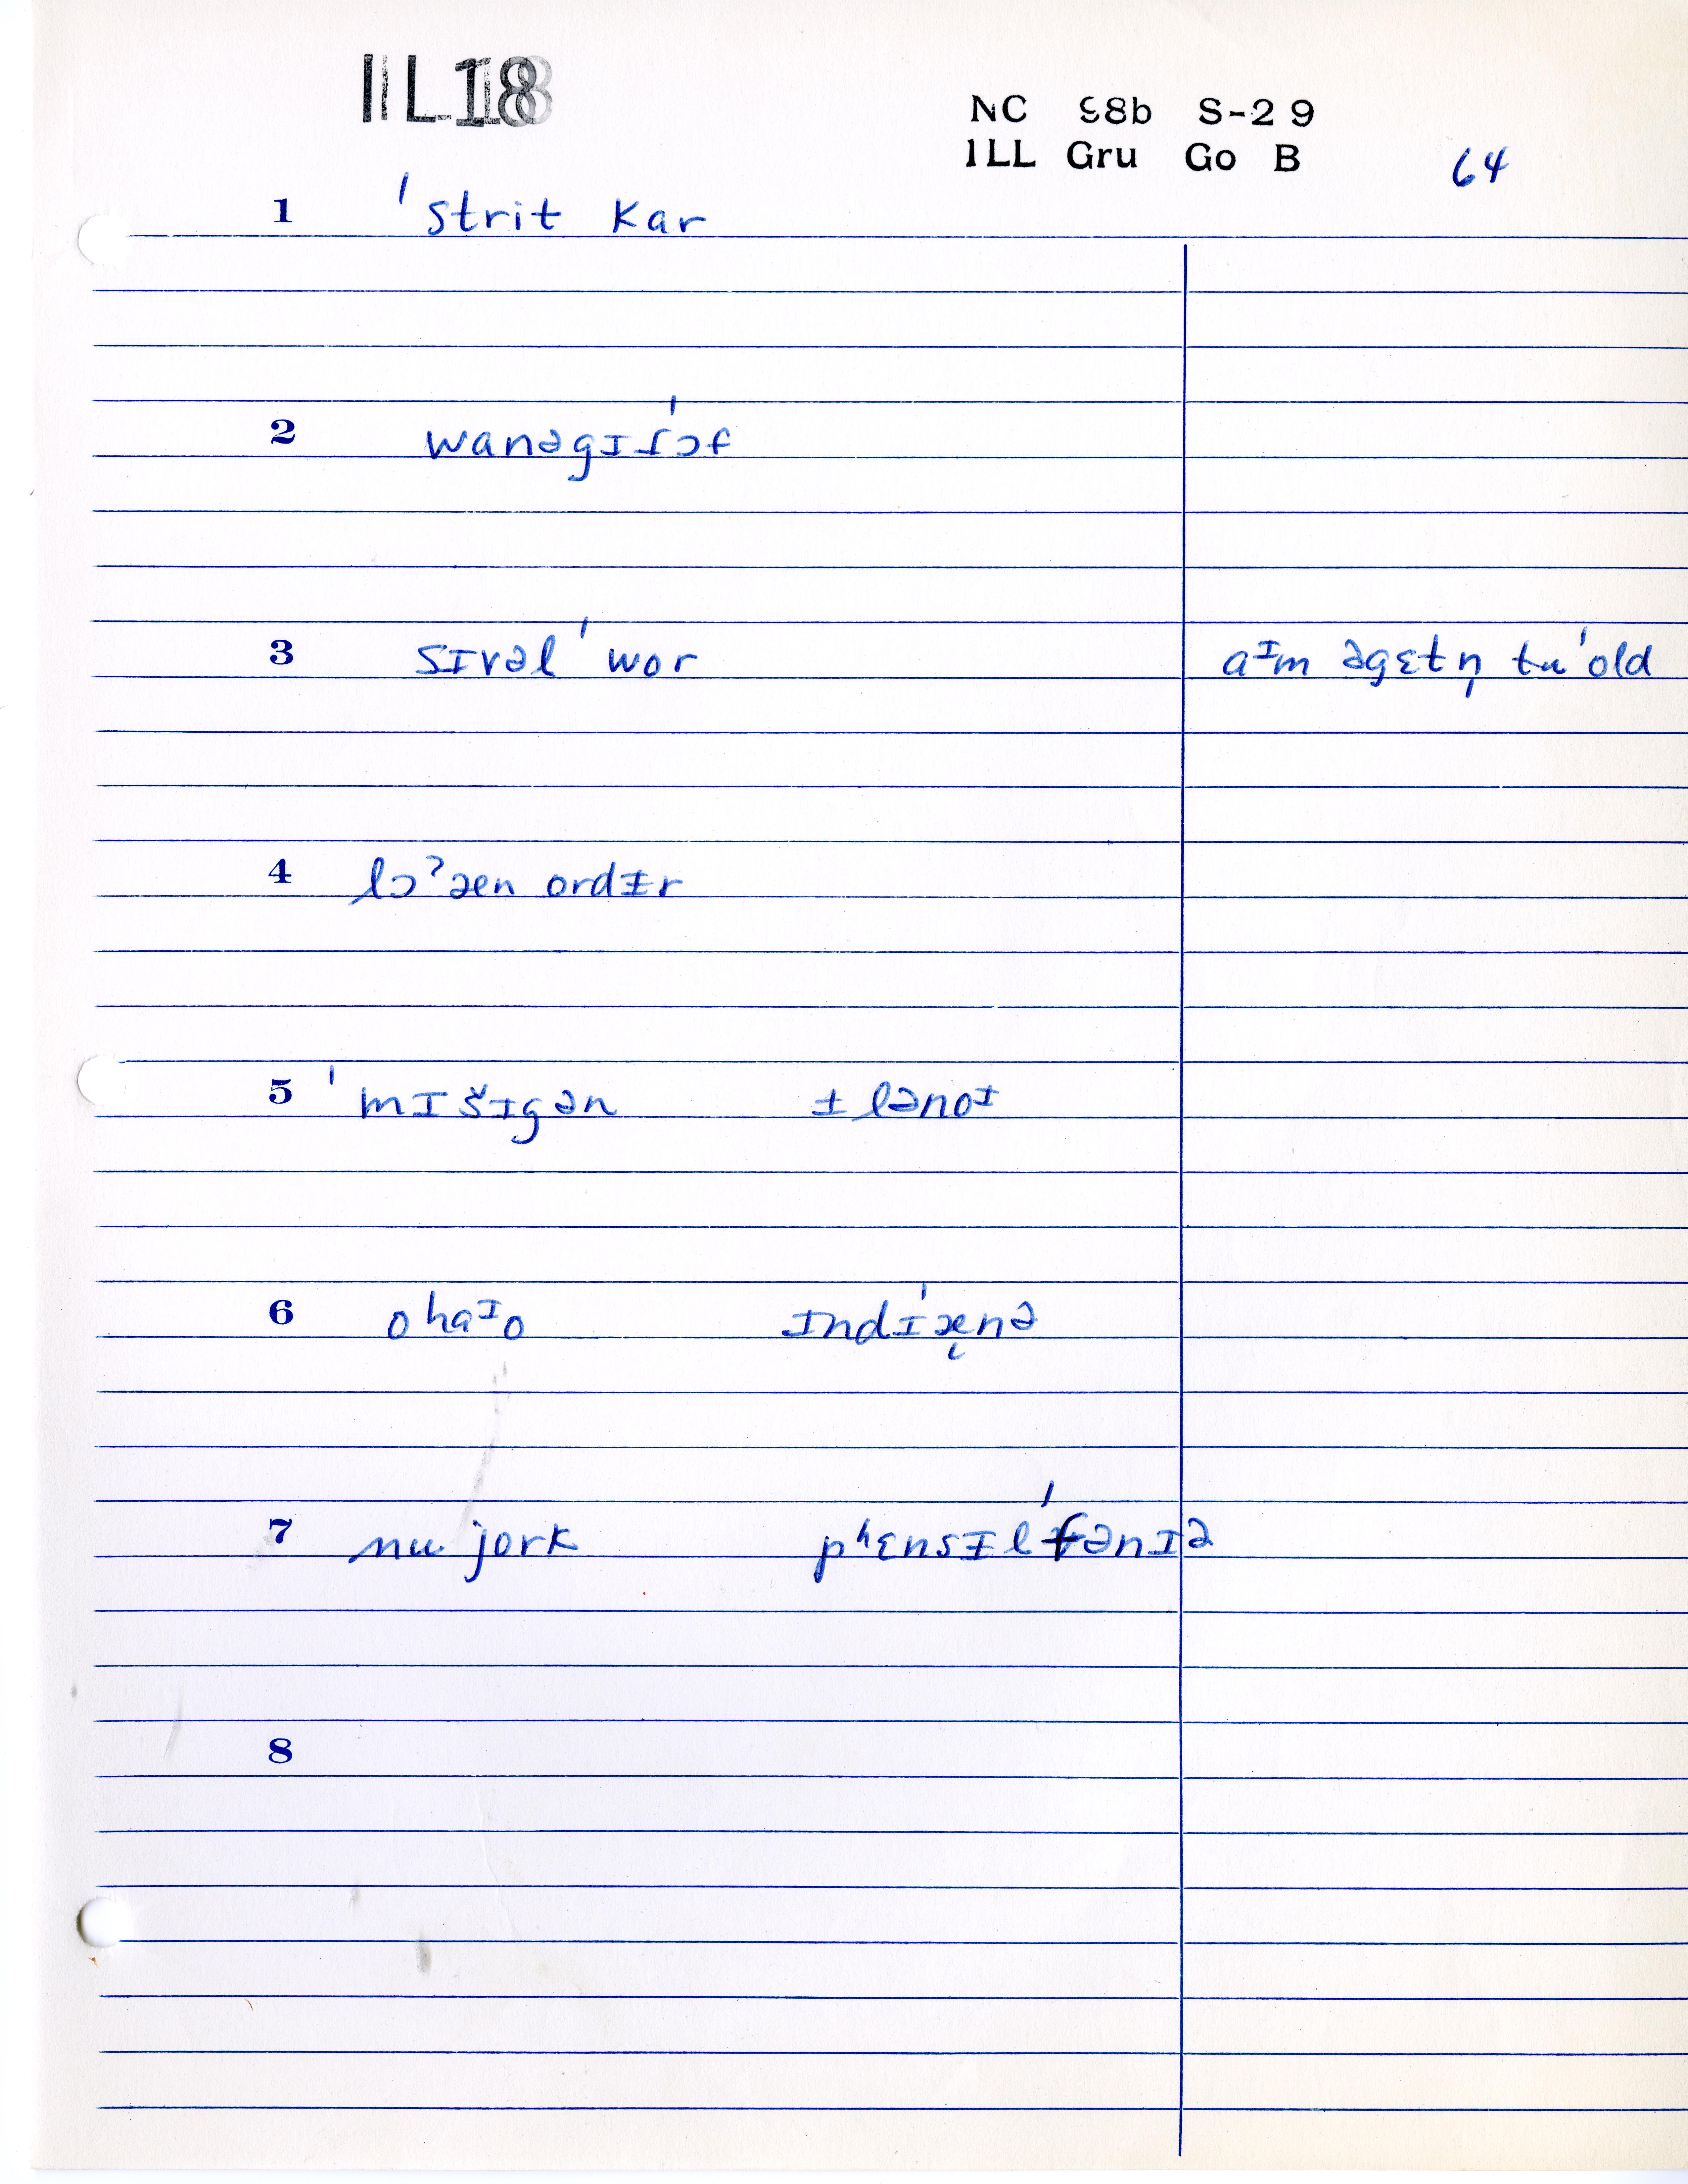 IL18
NC 98b S-29
ILL Gru Go B 64
1 ˈstrit kar
2 wanəgɪɾˈɔf
3 sɪvəl ˈwor aᴵm əgɛtn̩ tu ˈold
4 lɔˀæen ordɨr
5 ˈmɪšɪgən ɨlənoᴵ
6 ohaᴵo ɪndɪˈænə
7 nu jork pʰɛnsɨlˈfənɪə
8